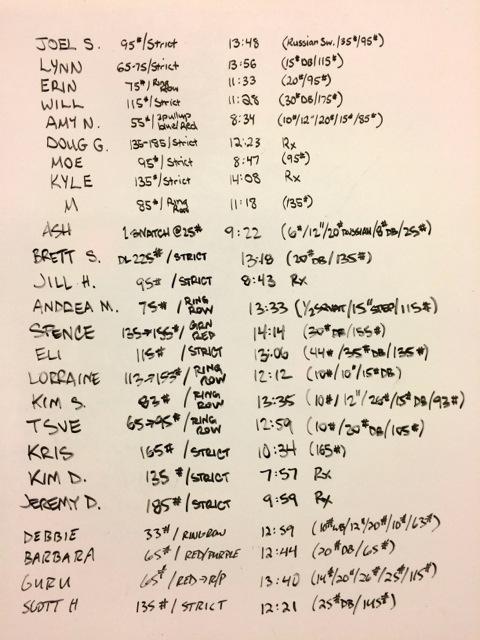 JOEL S. 95#/Strict 13:48 (Russian Sw./35#/95#)
LYNN 65-75/Strict 13:56 (15#DB/115#)
ERIN 75#/Ring Row 11:33 (20#/95#)
WILL 115#/Strict 11:28 (30#DB/175#)
AMY N. 55#/2pullup blue/Red 8:34 (10#/12"/20#/15#/85#)
DOUG G. 135-185/Strict 12:23 Rx
MOE 95#/Strict 8:47 (95#)
KYLE 135#/Strict 14:08 Rx
M 85#/Ring Row 11:18 (135#)
ASH 1-SNATCH @25# 9:22 (6#/12"/20#RUSSIAN/8#DB/25#)
BRETT S. DL225#/STRICT 13:18 (20#DB/135#)
JILL H. 95#/STRICT 8:43 Rx
ANDREA M. 75#/RING ROW 13:33 (1/2 SQUAT/15"STEP/115#)
SPENCE 135→155#/GRN RED 14:14 (30#DB/155#)
ELI 115#/STRICT 13:06 (44#/35#DB/135#)
LORRAINE 113→153#/RING ROW 12:12 (10#/10"/15#DB)
KIM S. 83#/RING ROW 13:35 (10#/12"/26#/15#DB/93#)
TSVE 65→95#/RING ROW 12:59 (10#/30#DB/105#)
KRIS 165#/STRICT 10:34 (165#)
KIM D. 135#/STRICT 7:57 Rx
JEREMY D. 185#/STRICT 9:59 Rx
DEBBIE 33#/RING-ROW 12:59 (10#WB/12"/20#/10#/63#)
BARBARA 65#/RED/PURPLE 12:44 (20#DB/65#)
GURU 65#/RED→R/P 13:40 (14#/20"/26#/25#/115#)
SCOTT H 135#/STRICT 12:21 (25#DB/145#)